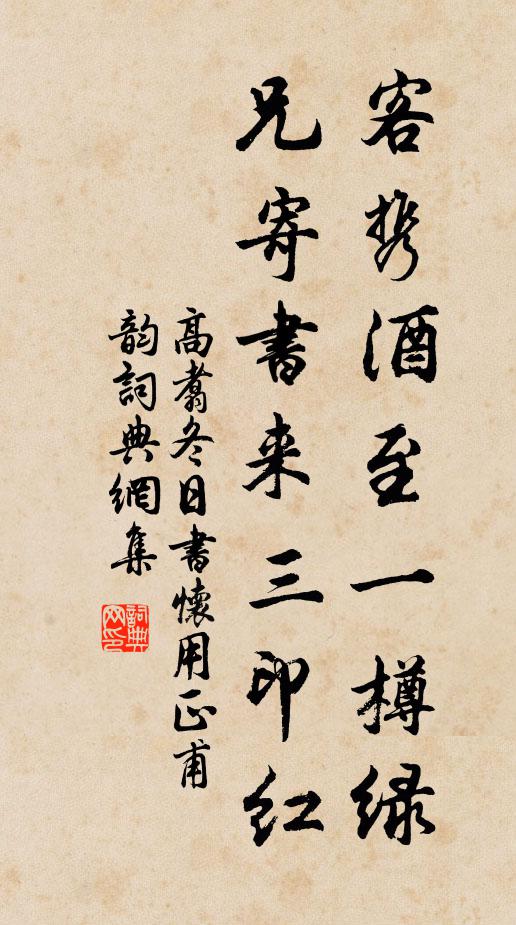 客携酒至一樽绿
兄寄書来三印红
高翥冬日書懷用正甫
韵詞典網集
詞典
网印